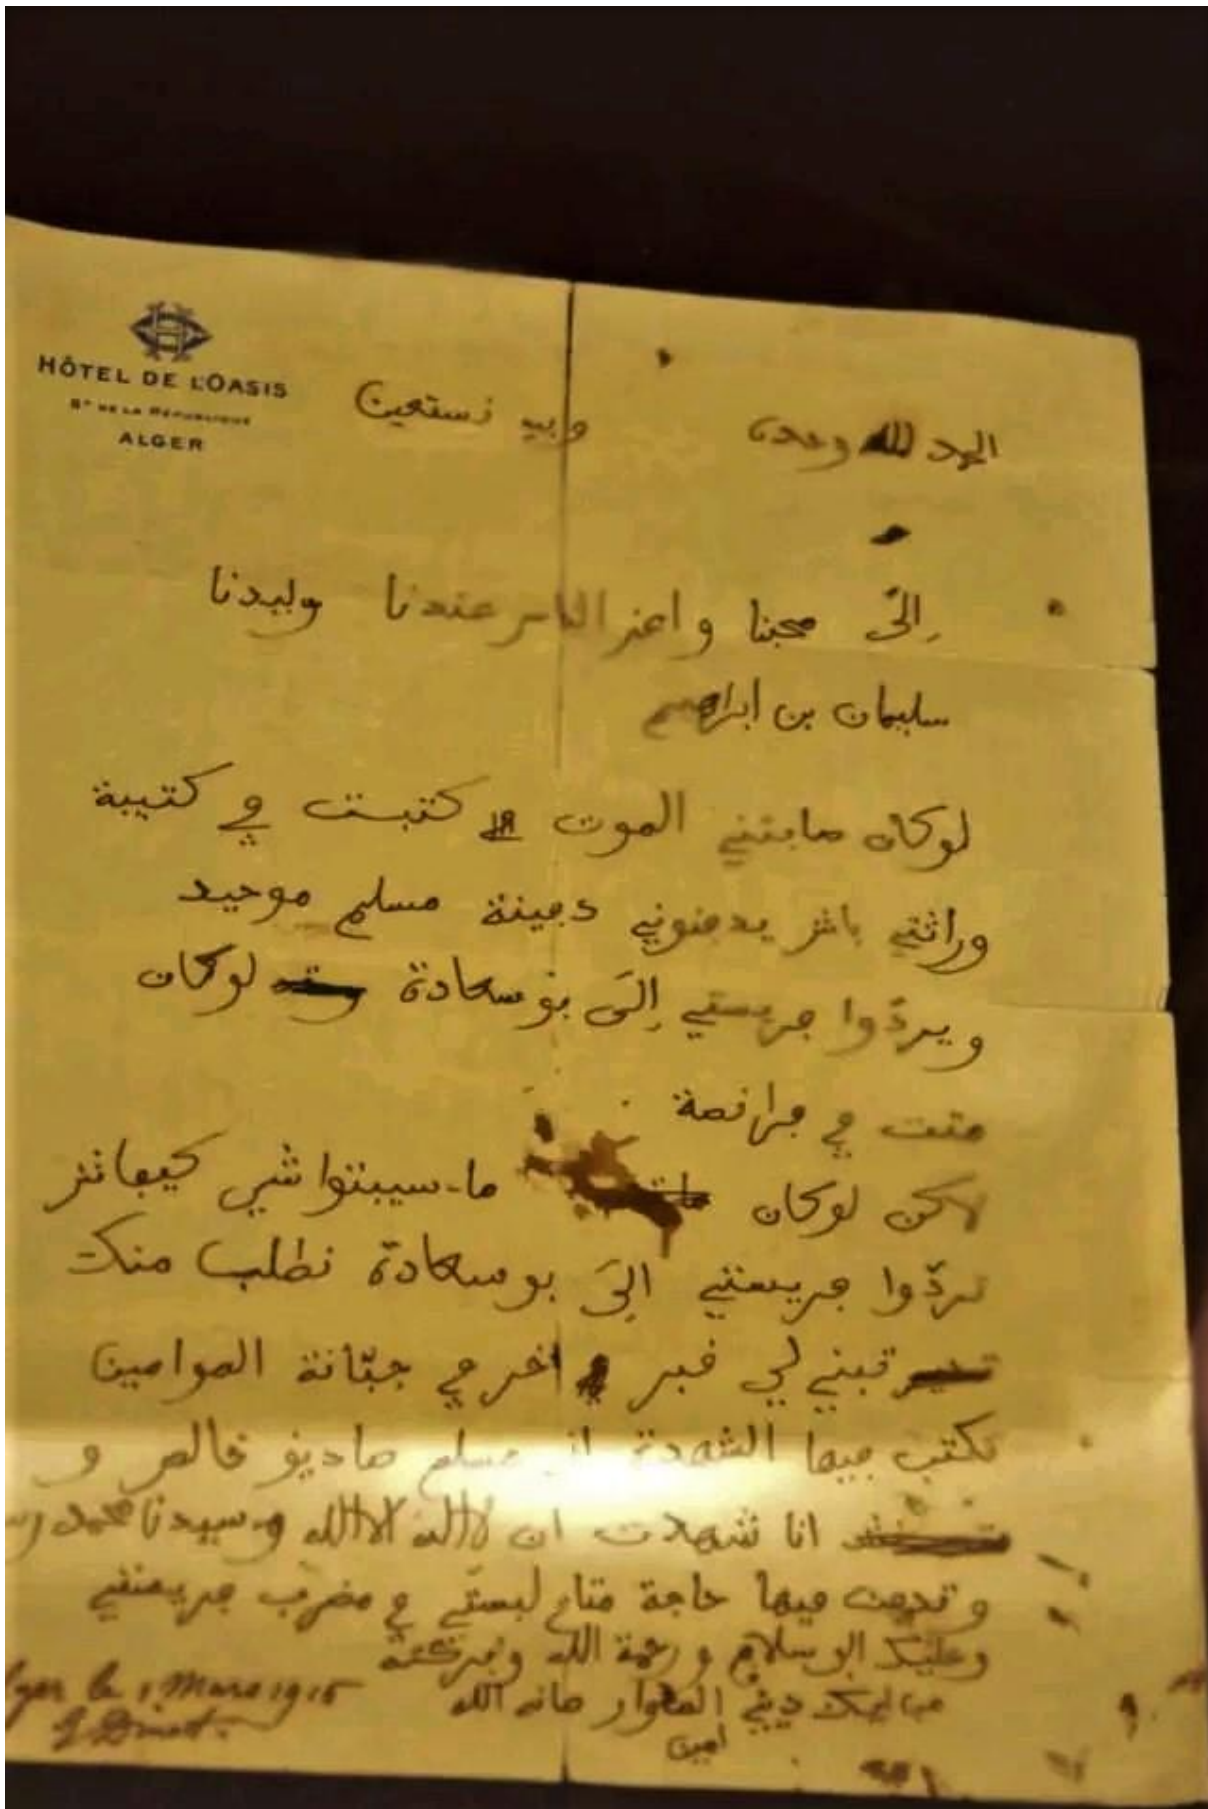 HÔTEL DE L'OASIS
Bd DE LA RÉPUBLIQUE
ALGER
الحمد لله وحده وبيه نستعين
إلىَ محبنا واعز الناس عندنا وليدنا
سليمان بن ابراهيم
لوكان صابتني الموت كتبت ڢي كتيبة
وراثتي باش يدڢنوني دڢينة مسلم موحيد
ويردّوا جريستي إلىَ بوسعادة لوكان
متت ڢي ڢرانصة
لاكن لوكان ما سيبتواشي كيڢاش
تردّوا جريستي الىَ بوسعادة نطلب منك
تبني لي ڧبر اخر ڢي جبّانة الموامين
تكتب ڢيها الشهدة مسلم صاديڧ خالص و
انا شهدت ان لا اله الا الله وسيدنا محمد رسـ
وتدڢن ڢيها حاجة متاع لبستي ڢي مضرب جريستي
وعليك السلام ورحمة الله وبركته
ديني الله
امين
Alger le 1 Mars 1915
E Dinet